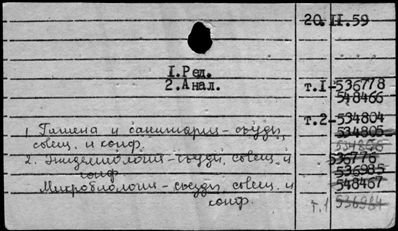 20.II.59
I.Ред.
2.Анал.
т.I-536778
548466
т.2-534804
534805
534806
536776
536985
548467
т.1 536984
1. Гигиена и санитария - съезды,
совещ. и конф.
2. Эпидемиология - съезды, совещ. и
конф.
Микробиология - съезды, совещ. и
конф.